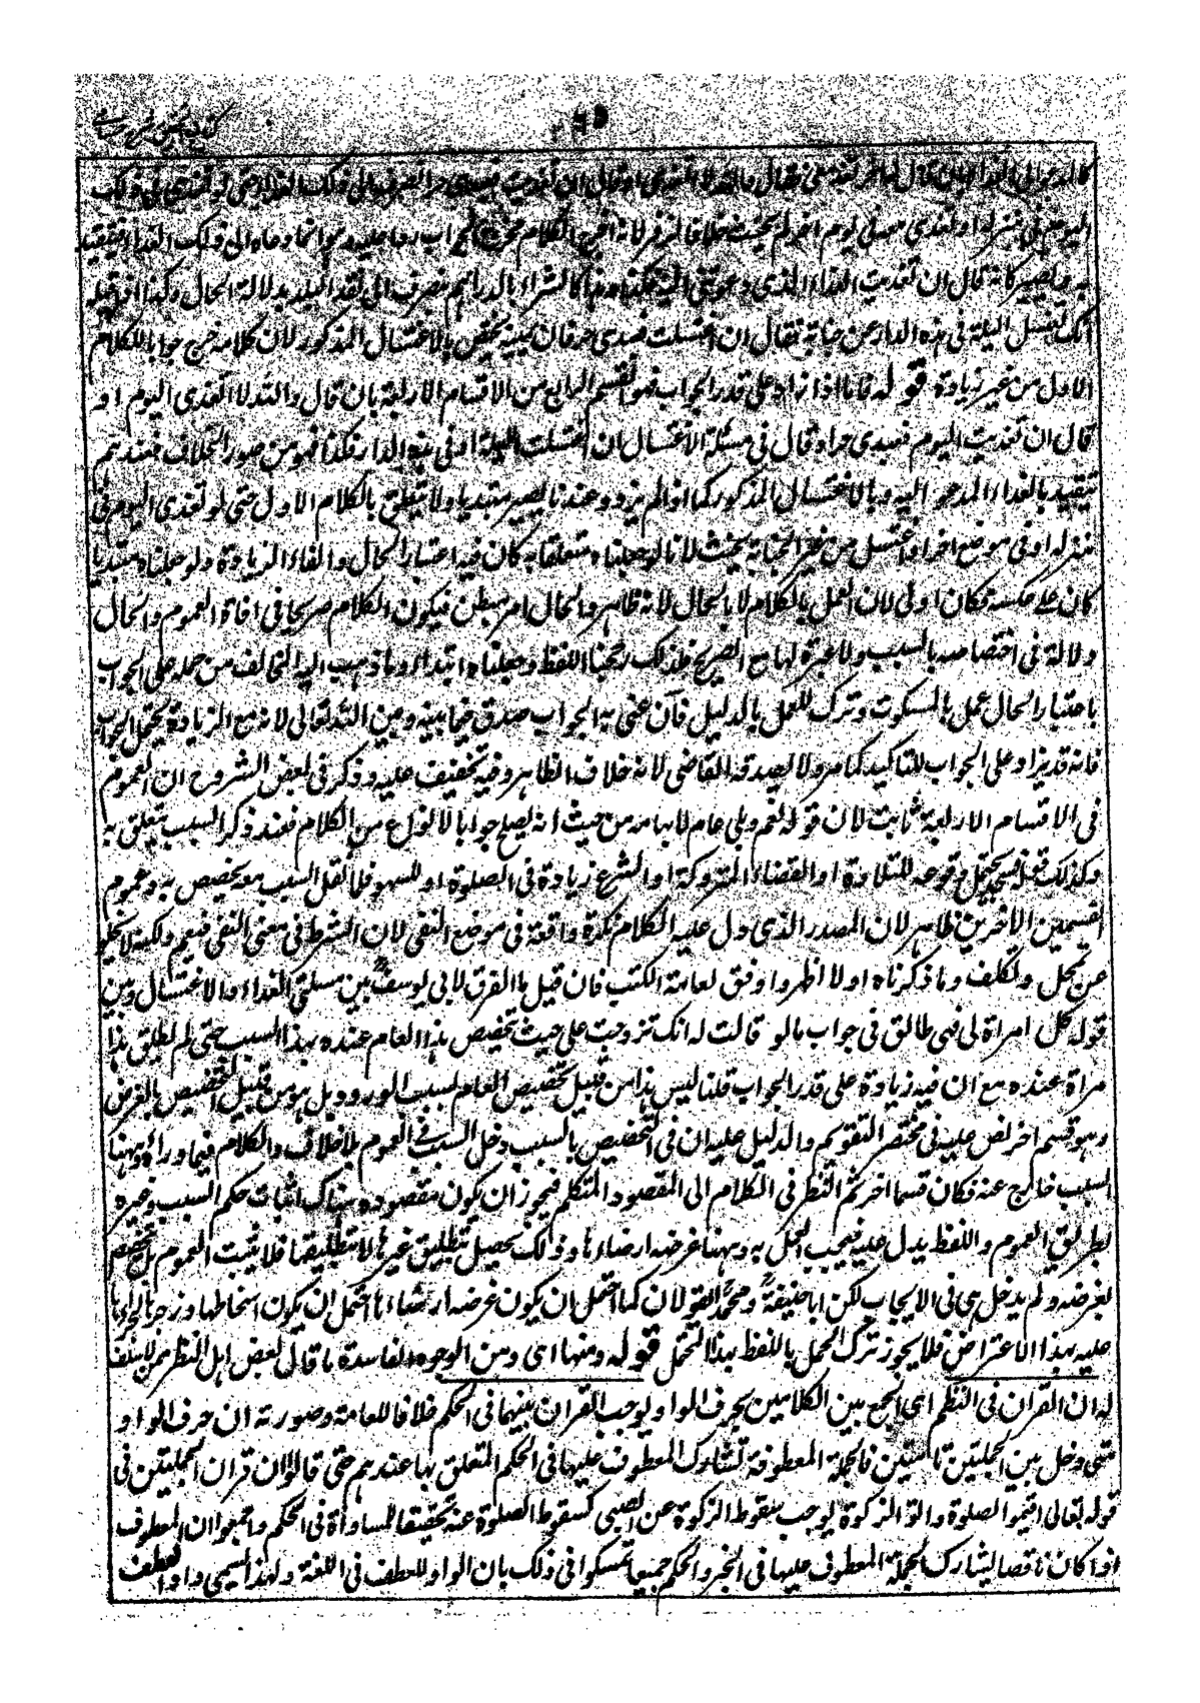 ٦٥
كالمدعو الى الغداء بان قال لآخر تغد معي فقال والله لا اتغدى او قال ان تغديت فعبدي حر انصرف الى ذلك الغداء حتى لو تغدى بعد ذلك
اليوم في منزله او تغدى معه في يوم آخر لم يحنث خلافا لزفر لانه اخرج الكلام مخرج الجواب ردا عليه وهو انما دعاه الى ذلك الغداء فيتقيد
به ويصير كانه قال ان تغديت الغداء الذي دعوتني اليه فكذا هذا كالشراء بالدراهم ينصرف الى نقد البلد بدلالة الحال وكذا اذا قيل له
انك تغتسل الليلة في هذه الدار عن جنابة فقال ان اغتسلت فعبدي حر فان يمينه يختص بالاغتسال المذكور لان كلامه خرج جوابا للكلام
الاول من غير زيادة قوله فاما اذا زاد على قدر الجواب فهو القسم الرابع من الاقسام الاربعة بان قال والله لا اتغدى اليوم او
قال ان تغديت اليوم فعبدي حر او قال في مسئلة الاغتسال ان اغتسلت الليلة او في هذه الدار فكذا فهو من صور الخلاف فعندهم
يتقيد بالغداء المدعو اليه وبالاغتسال المذكور كما اذا لم يزد وعندنا يصير مبتديا ولا يتعلق بالكلام الاول حتى لو تغدى اليوم في
منزله او في موضع آخر او اغتسل من غير الجنابة يحنث لانا لو جعلناه متعلقا به كان فيه اعتبار الحال والغاء الزيادة ولو جعلناه مبتديا
كان على عكسه فكان اولى لان العمل بالكلام لا بالحال لانه ظاهر والحال امر مبطن فيكون الكلام صريحا في افادة العموم والحال
دلالة في اختصاصه بالسبب ولا عبرة لها مع الصريح فلذلك رجحنا اللفظ وجعلناه ابتداء وما ذهب اليه المخالف من حمله على الجواب
باعتبار الحال عمل بالسكوت وترك للعمل بالدليل فان عنى به الجواب صدق فيما بينه وبين الله تعالى لانه مع الزيادة يحتمل الجواب
فانه قد يزاد على الجواب للتاكيد كما مر ولا يصدقه القاضي لانه خلاف الظاهر وفيه تخفيف عليه وذكر في بعض الشروح ان العموم
في الاقسام الاربعة ثابت لان قوله نعم وبلى عام لابهامه من حيث انه يصلح جوابا لانواع من الكلام فعند ذكر السبب يتعلق به
وكذلك قوله فسجد يحتمل وقوعه للتلاوة او القضاء المتروكة او الشرع زيادة في الصلوة او للسهو فلما نقل السبب معه تخصص به وعموم
القسمين الاخرين ظاهر لان المصدر الذي دل عليه الكلام نكرة واقعة في موضع النفي لان الشرط في معنى النفي فيعم ولكنه لا يخلو
عن تمحل وتكلف وما ذكرناه اولا اظهر واوفق لعامة الكتب فان قيل ما الفرق لابي يوسف بين مسئلتي الغداء والاغتسال وبين
قوله كل امراة لي فهي طالق في جواب ما لو قالت له انك تزوجت علي حيث تخصص هذا العام عنده بهذا السبب حتى لم تطلق هذه
مراة عنده مع ان فيه زيادة على قدر الجواب قلنا ليس هذا من قبيل تخصيص العام بسبب الورود بل هو من قبيل التخصيص بالغرض
وهو قسم آخر نص عليه في مختصر التقويم والدليل عليه ان في التخصيص بالسبب دخل السبب في العموم بلا خلاف والكلام فيما وراءه وههنا
السبب خارج عنه فكان قسما آخر ثم النظر في الكلام الى المقصود المتكلم فيجوز ان يكون مقصوده هناك اثبات حكم السبب وغيره
بطريق العموم واللفظ يدل عليه فيجب العمل به وههنا غرضه ارضاءها وذلك تحصيل بتطليق غيرها لا بتطليقها فلا يثبت العموم بل تخصص
بغرضه ولم يدخل هي في الايجاب لكن ابا حنيفة ومحمد يقولان كما احتمل ان يكون غرضه ارضاءها احتمل ان يكون اسخاطها وزجرها لاجترائها
عليه بهذا الاعتراض فلا يجوز ترك العمل باللفظ بهذا المحتمل قوله ومنها اي ومن الوجوه الفاسدة ما قال بعض اهل النظر ممن لا سلف
له ان القران في النظم اي الجمع بين الكلامين بحرف الواو يوجب القران بينهما في الحكم خلافا للعامة وصورته ان حرف الواو
متى دخل بين الجملتين تامتين فالجملة المعطوفة تشارك المعطوف عليها في الحكم المتعلق بها عندهم حتى قالوا ان قران الجملتين في
قوله تعالى اقيموا الصلوة واتوا الزكوة يوجب سقوط الزكوة عن الصبي كسقوط الصلوة عنه تحقيقا للمساواة في الحكم واجمعوا ان المعطوف
اذا كان ناقصا يشارك الجملة المعطوف عليها في الخبر والحكم جميعا تمسكوا في ذلك بان الواو للعطف في اللغة ولهذا يسمى واو العطف